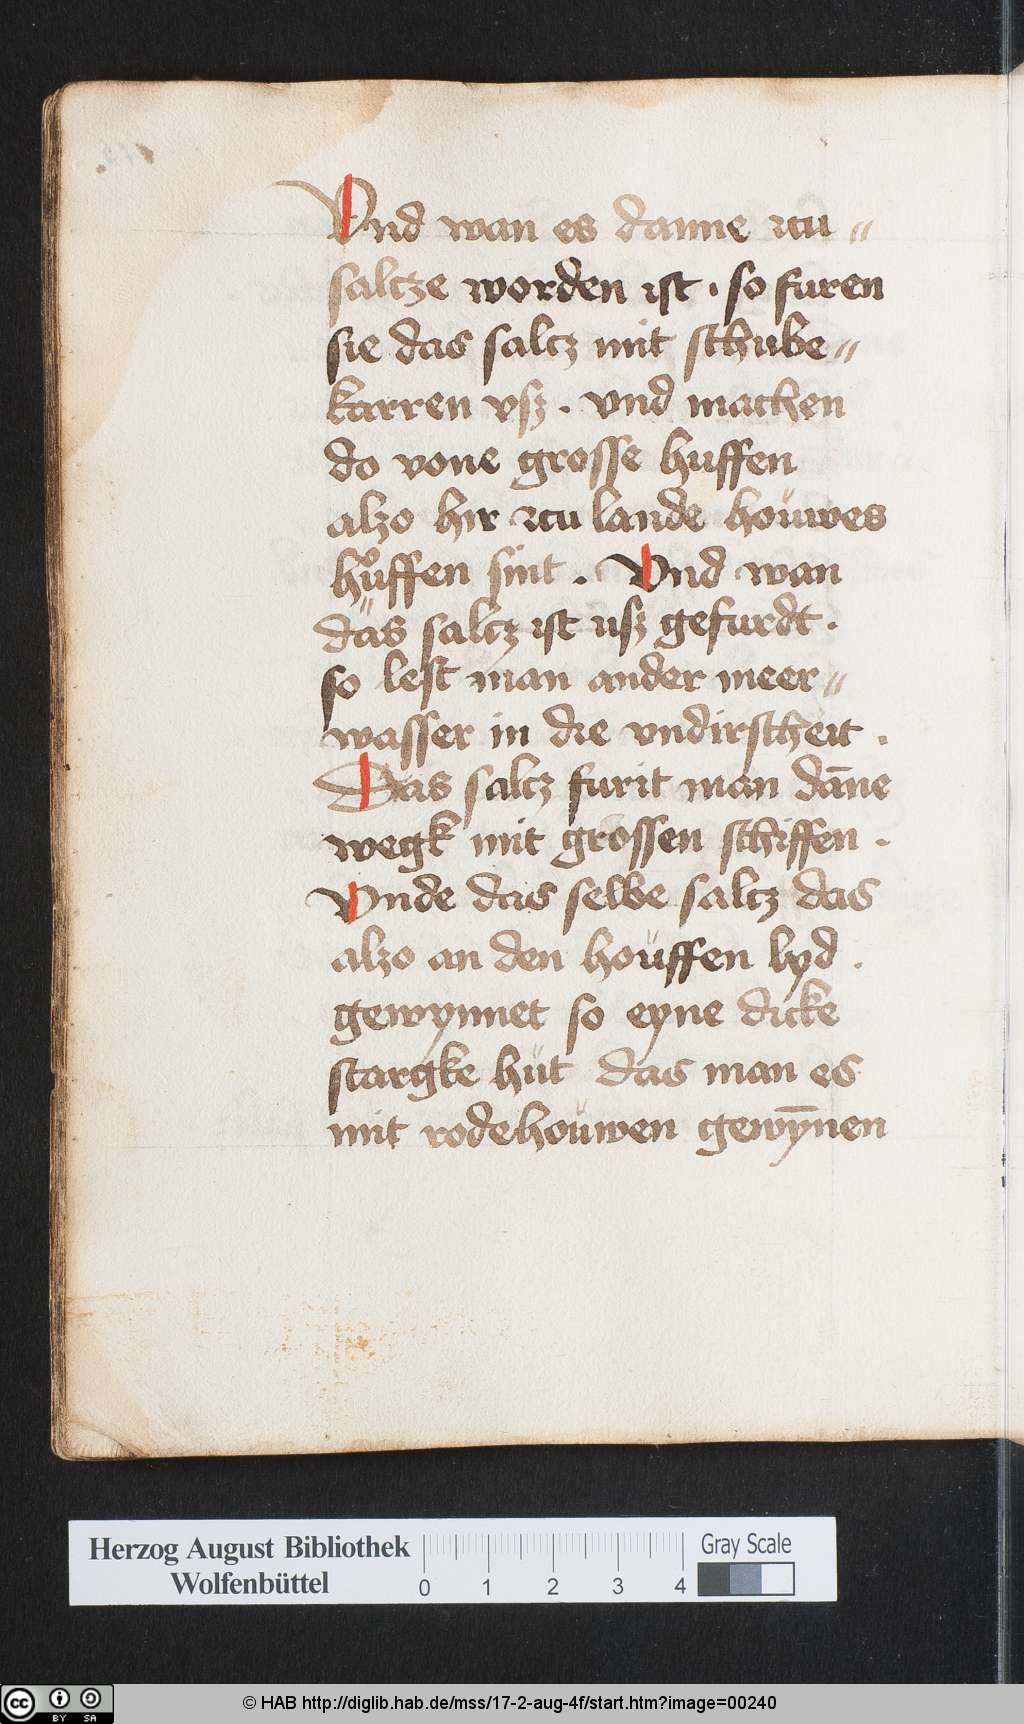 Vnd wan es danne zcu〃
saltze worden ist · so furen
sie das saltz mit schube〃
karren vsz · vnd machen
do vone grosse huffen
alzo hir zcu lande houwes
huͦffen sint · Vnd wan
das saltz ist usz gefurdt ·
so lest man ander meer〃
wasser in die vndirscheit ·
Das saltz furit man dāne
wegk mit grossen schiffen ·
Vnde das selbe saltz das
alzo an den houffen lyd ·
gewynnet so eyne dicke
stargke hüt das man es
mit rodehoüwen gewȳnen
Herzog August Bibliothek
Wolfenbüttel
0 1 2 3 4
Gray Scale
cc BY SA
© HAB http://diglib.hab.de/mss/17-2-aug-4f/start.htm?image=00240